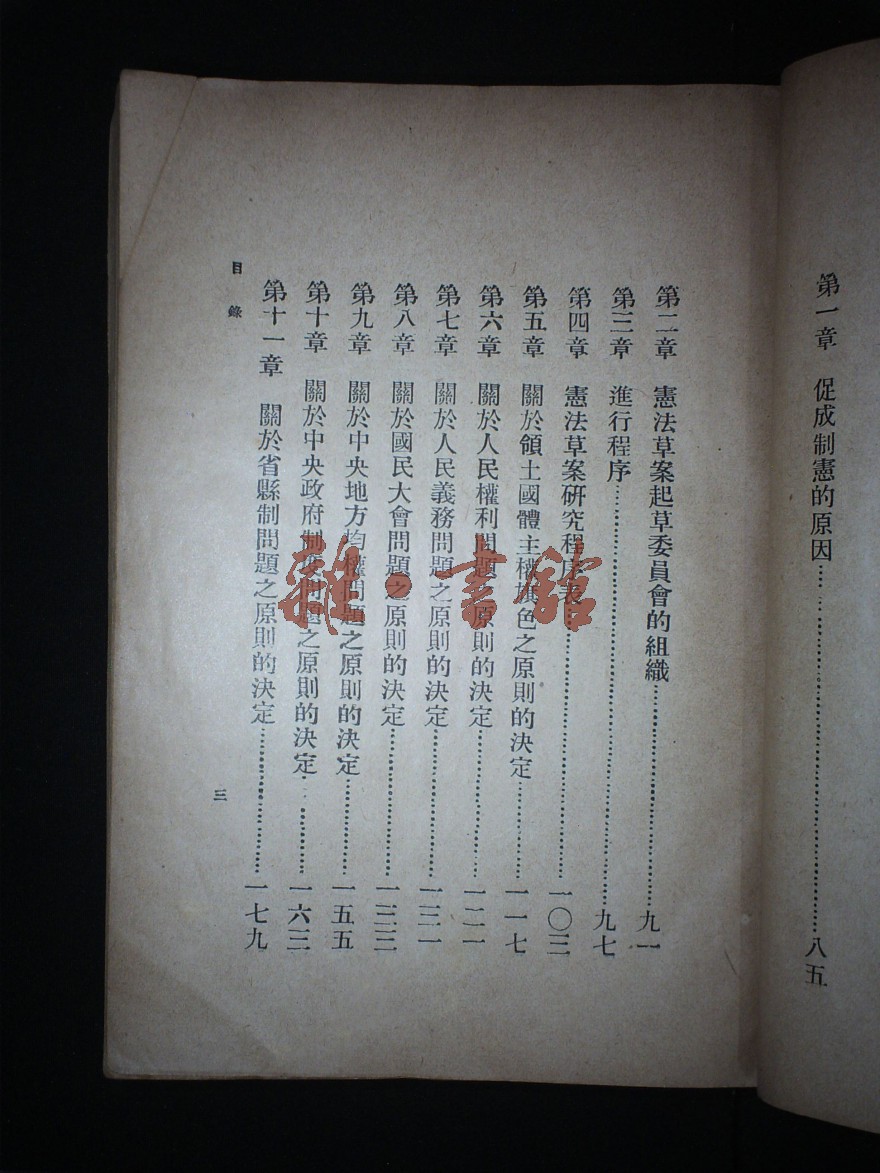 第一章　促成制憲的原因……八五
第二章　憲法草案起草委員會的組織……九一
第三章　進行程序……九七
第四章　憲法草案研究程序表……一〇三
第五章　關於領土國體主權色之原則的決定……一一七
第六章　關於人民權利問題原則的決定……一二一
第七章　關於人民義務問題之原則的決定……一三一
第八章　關於國民大會問題之原則的決定……一三三
第九章　關於中央地方均權問題之原則的決定……一五五
第十章　關於中央政府制度問題之原則的決定……一六三
第十一章　關於省縣制問題之原則的決定……一七九
目錄
三
雜·書館